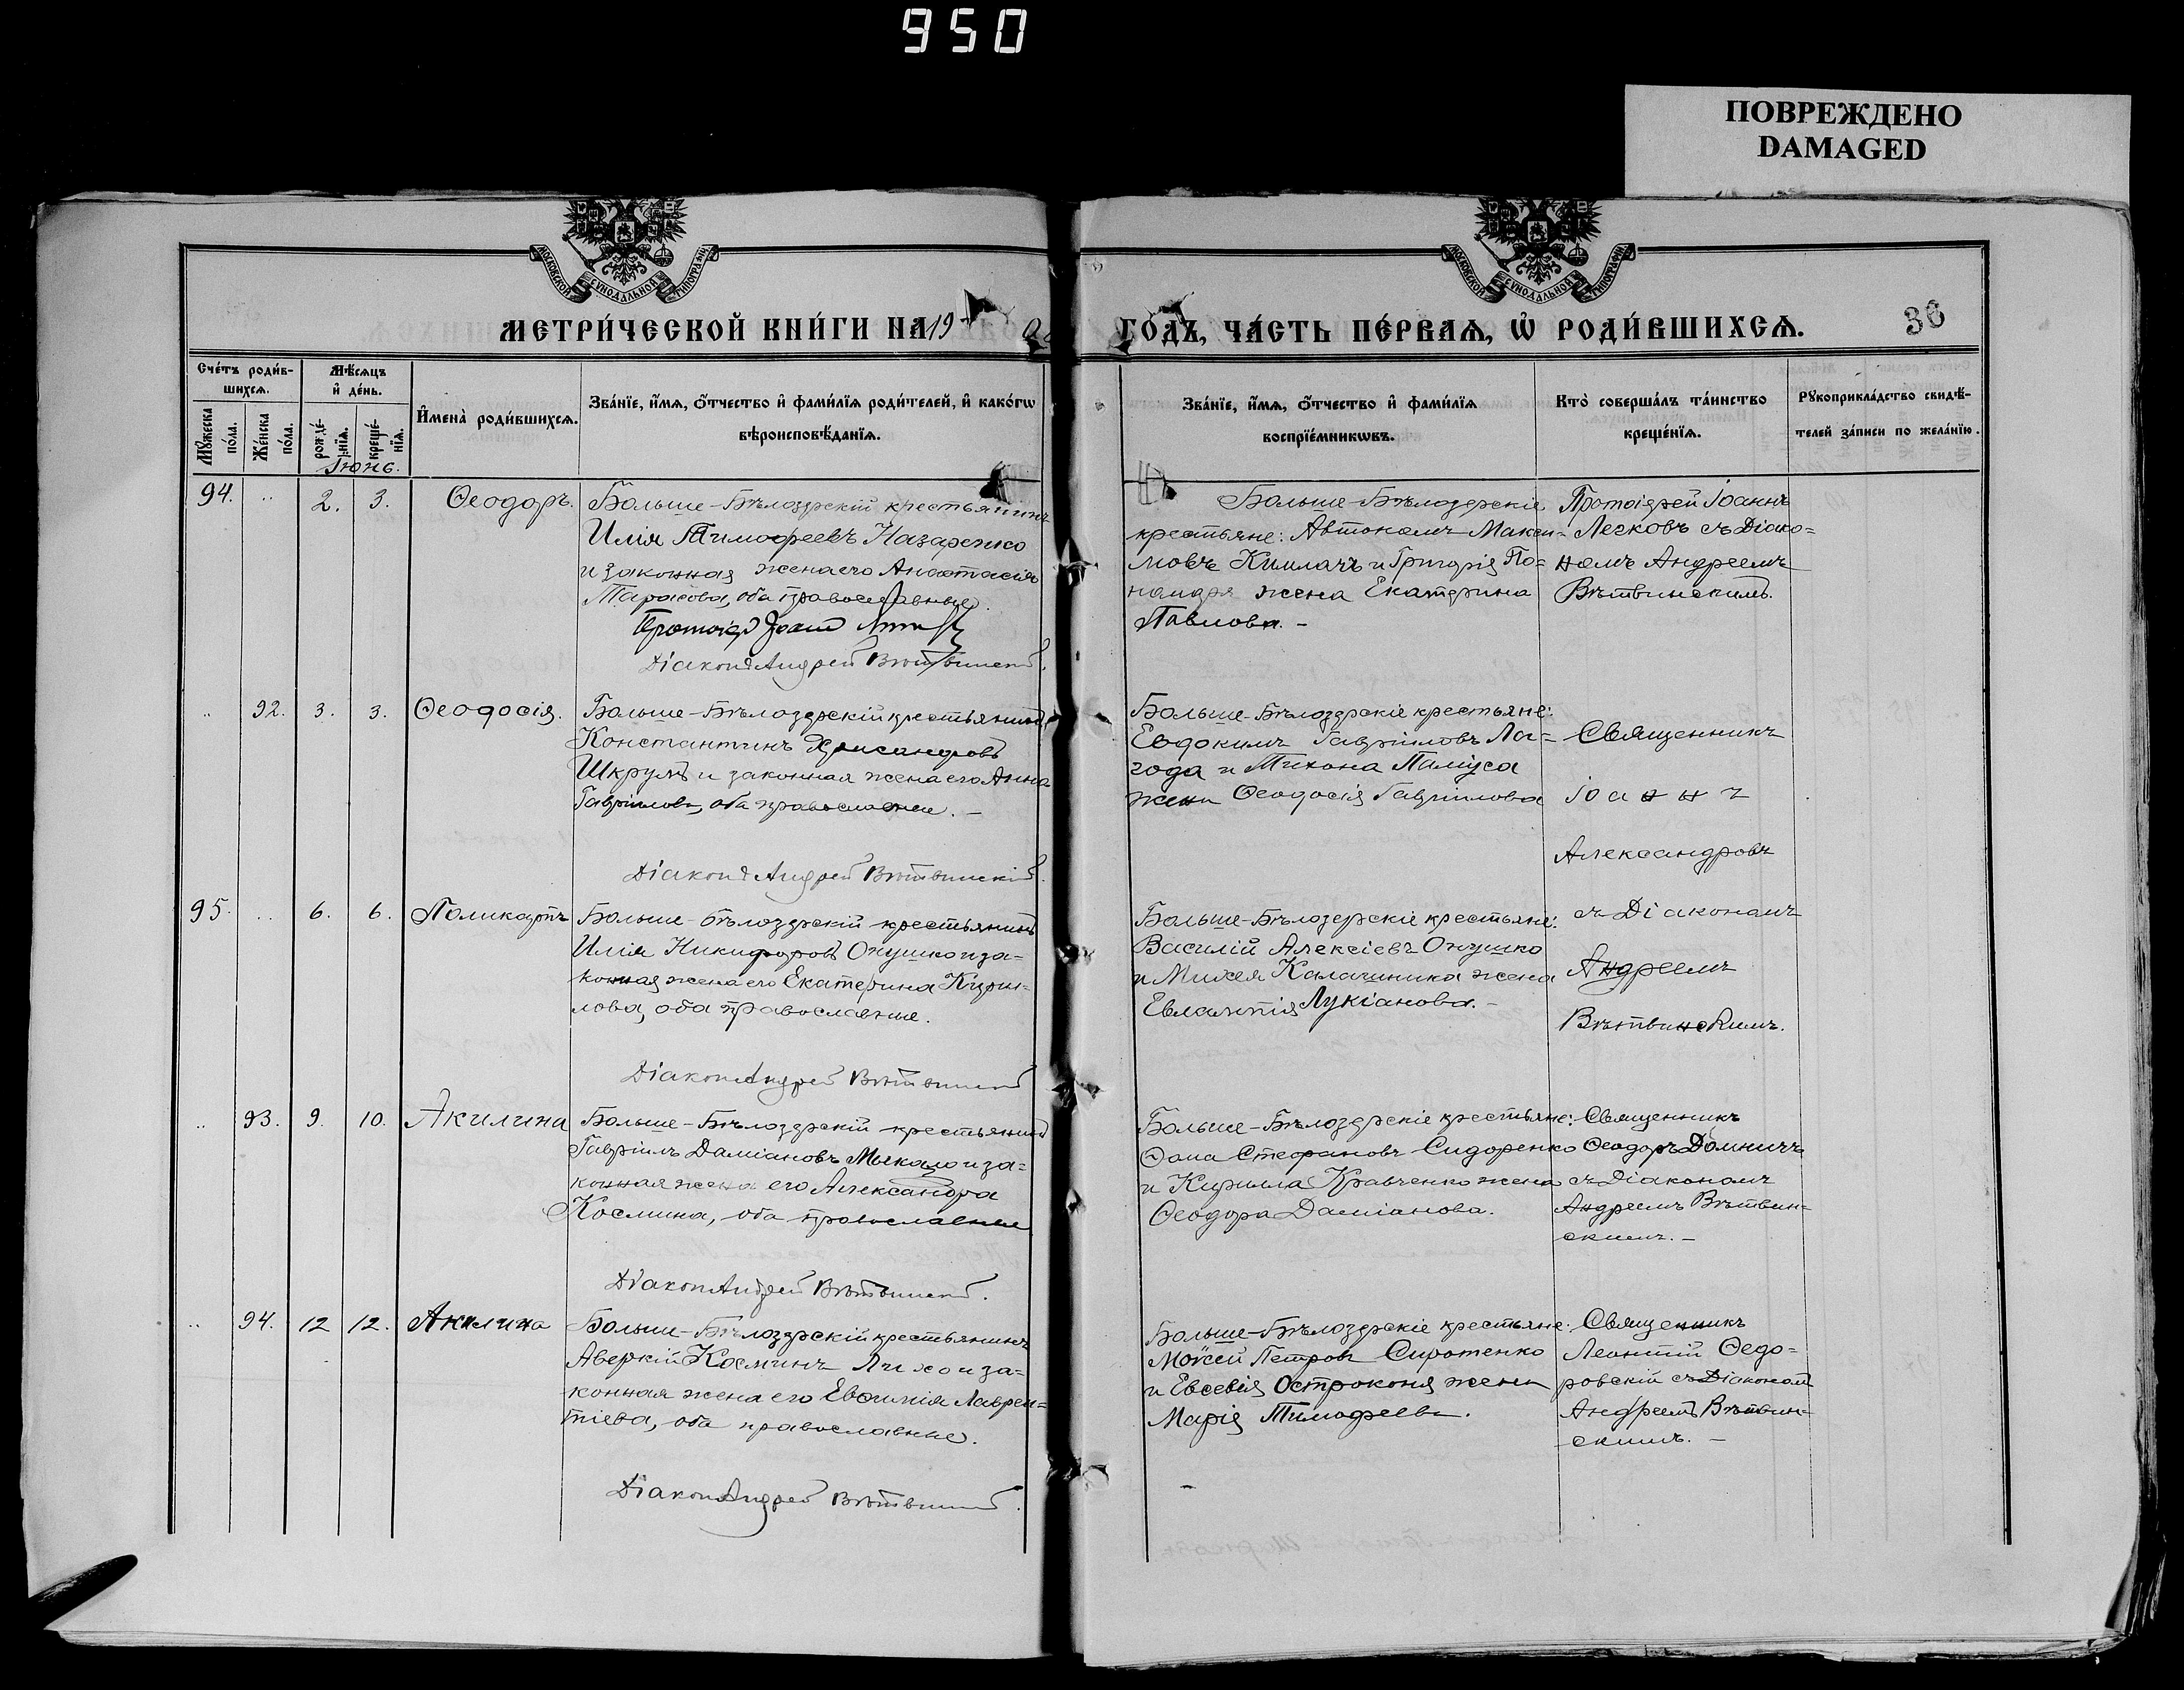 950
ПОВРЕЖДЕНО
DAMAGED
МОСКОВСКОЙ СѴНОДАЛЬНОЙ ТИПОГРАФІИ
МОСКОВСКОЙ СѴНОДАЛЬНОЙ ТИПОГРАФІИ
МЕТРИ́ЧЕСКОЙ КНИ́ГИ НА 19
ГОДЪ, ЧА́СТЬ ПЕ́РВАѦ, Ѡ҆ РОДИ́ВШИХСѦ.
36
Сче́тъ роди́в-
шихсѧ.
Мꙋ́жеска по́ла.
Же́нска по́ла.
Мѣ́сѧцъ
и҆ де́нь.
рожде́-нїѧ.
креще́-нїѧ.
И҆мена̀ роди́вшихсѧ.
Зва́нїе, и҆́мѧ, ѻ҆́тчество и҆ фами́лїѧ роди́телей, и҆ како́гѡ
вѣроисповѣ́данїѧ.
Зва́нїе, и҆́мѧ, ѻ҆́тчество и҆ фами́лїѧ
воспрїе́мникѡвъ.
Кто̀ соверша́лъ та́инство
креще́нїѧ.
Рꙋкоприкла́дство свидѣ́-
телей за́писи по жела́нїю.
Іюнь.
94. .. 2. 3. Ѳеодоръ.
Больше-Бѣлозерскій крестьянинъ
Илія Тимофеевъ Назаренко
и законная жена его Анастасія
Тарасова, оба православные.
Діаконъ Андрей Вѣтвинскій.
Больше-Бѣлозерскіе
крестьяне: Автономъ Макси-
мовъ Кишлачъ и Григорія По-
номаря жена Екатерина
Павлова. -
Протоіерей Іоаннъ
Легковъ съ Діако-
номъ Андреемъ
Вѣтвинскимъ.
.. 92. 3. 3. Ѳеодосія.
Больше-Бѣлозерскій крестьянинъ
Константинъ
Шкрумъ и законная жена его Анна
Гавріилова, оба православные. -
Діаконъ Андрей Вѣтвинскій.
Больше-Бѣлозерскіе крестьяне:
Евдокимъ Гавріиловъ Ла-
года и Тихона
жена Ѳеодосія Гавріилова
Священникъ
Іоаннъ
Александровъ
съ Діакономъ
Андреемъ
Вѣтвинскимъ.
95. .. 6. 6. Поликарпъ
Больше-Бѣлозерскій крестьянинъ
Илія Никифоровъ Онушко и за-
конная жена его Екатерина Кири-
лова, оба православные.
Діаконъ Андрей Вѣтвинскій
Больше-Бѣлозерскіе крестьяне:
Василій Алексіевъ Онушко
и Михея Калашника жена
Евлампія Лукіанова. -
.. 93. 9. 10. Акилина
Больше-Бѣлозерскій крестьянинъ
Гавріилъ Даміановъ Мыкало и за-
конная жена его Александра
Космина, оба православные
Діаконъ Андрей Вѣтвинскій.
Больше-Бѣлозерскіе крестьяне:
Ѳома Стефановъ Сидоренко
и Кирилла Кравченко жена
Ѳеодора Даміанова.
Священникъ
Ѳеодоръ Домничъ
съ Діакономъ
Андреемъ Вѣтвин-
скимъ. -
.. 94. 12 12. Акилина
Больше-Бѣлозерскій крестьянинъ
Аверкій Косминъ Лихо и за-
конная жена его Евѳимія Лаврен-
тіева, оба православные.
Діаконъ Андрей Вѣтвинскій.
Больше-Бѣлозерскіе крестьяне:
Моѵсей Петровъ Сиротенко
и Евсевія Остроконя жена
Марія Тимофеева.
Священникъ
Леонтій Ѳедо-
ровскій съ Діакономъ
Андреемъ Вѣтвин-
скимъ. -